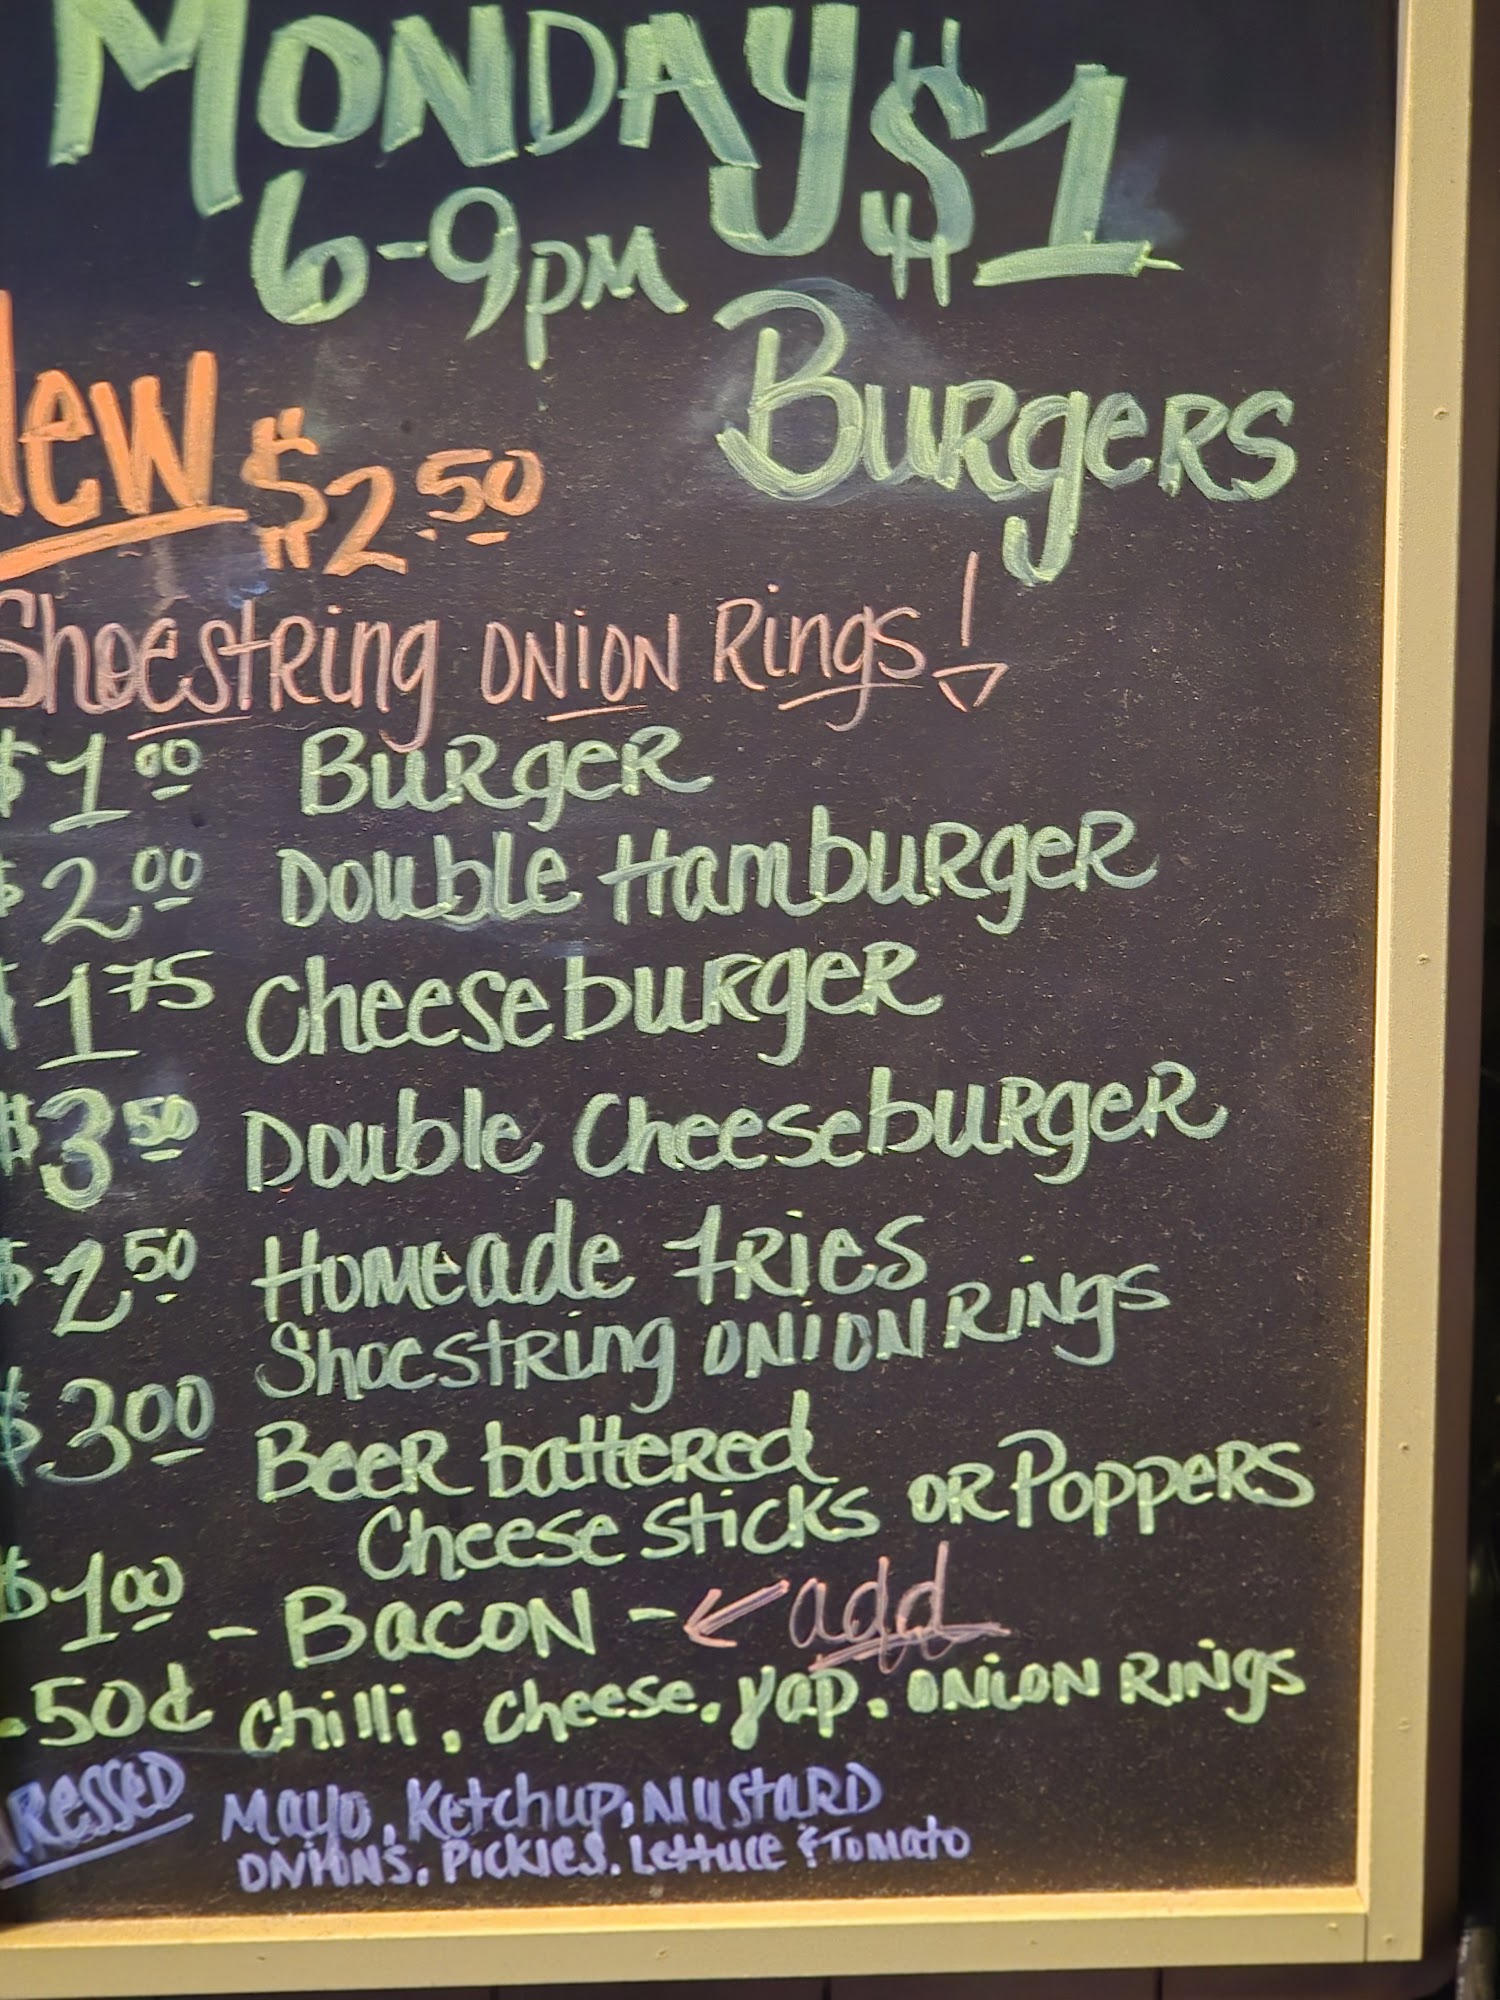 MONDAY $1
6-9pm
BURGERS
New $2.50
Shoestring ONION Rings!
$1.00 BURgeR
$2.00 Double HambURgeR
$1.75 CheesebURgeR
$3.50 Double CheesebURgeR
$2.50 Homeade FRies
Shoestring ONION Rings
$3.00 BeeR batteRed
Cheese sticks OR PoppeRS
$1.00 - BacoN - ← add
.50¢ chilli, cheese, yap, ONiON RiNgs
DRessed Mayo, Ketchup, MustaRD
ONIONS, Pickles, Lettuce & Tomato